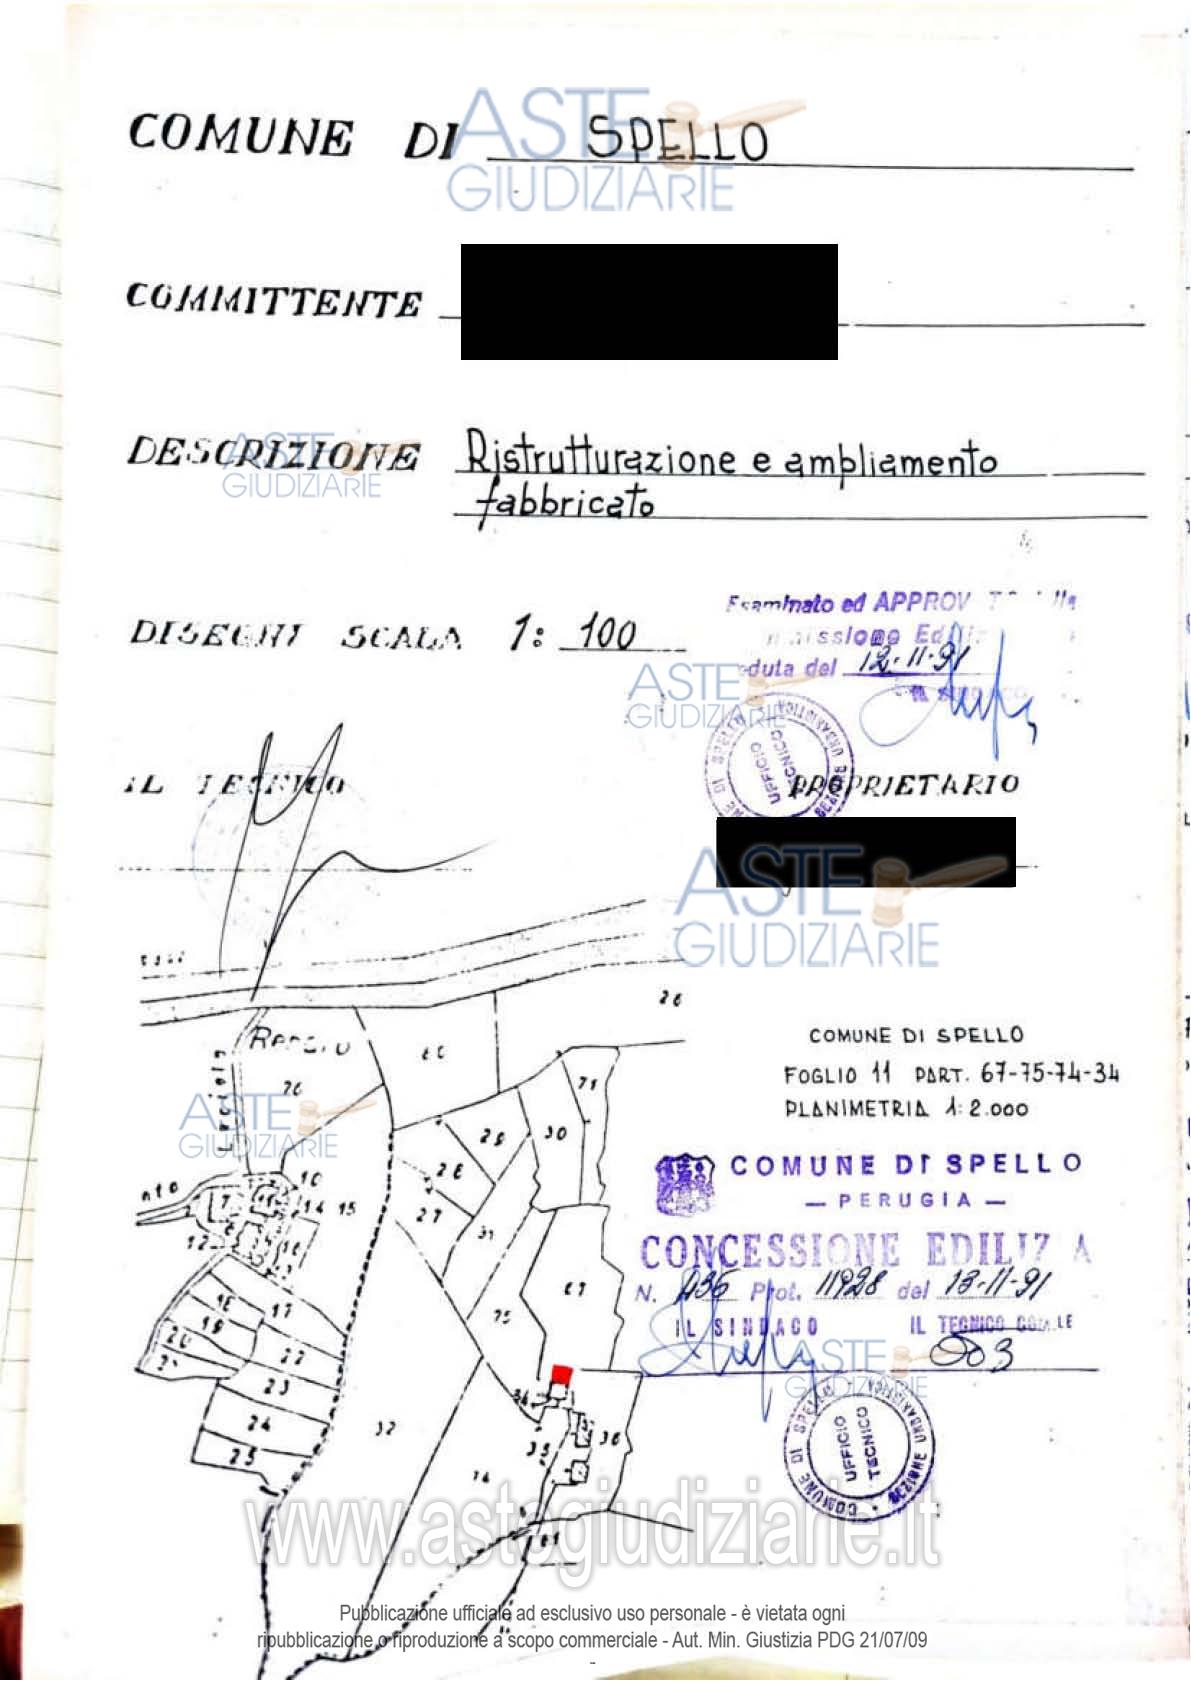 COMUNE DI SPELLO
ASTE
GIUDIZIARIE
COMMITTENTE
DESCRIZIONE Ristrutturazione e ampliamento
fabbricato
ASTE
GIUDIZIARIE
Esaminato ed APPROV
DISEGNI SCALA 1: 100
Ediliz
duta del 12-11-91
IL SINDACO
ASTE
GIUDIZIARIE
UFFICIO
TECNICO
IL TECNICO
PROPRIETARIO
ASTE
GIUDIZIARIE
26
60
76
71
COMUNE DI SPELLO
FOGLIO 11 PART. 67-75-74-34
PLANIMETRIA 1:2.000
ASTE
GIUDIZIARIE
29
30
28
27
31
10
7
11
14
15
12
16
COMUNE DI SPELLO
— PERUGIA —
CONCESSIONE EDILIZIA
N. 436 Prot. 11928 del 13-11-91
IL SINDACO IL TECNICO COM.LE
67
75
18
17
19
20
22
23
24
25
32
34
35
36
ASTE
GIUDIZIARIE
COMUNE DI SPELLO
SEZIONE URBANISTICA
UFFICIO
TECNICO
61
www.astegiudiziarie.it
Pubblicazione ufficiale ad esclusivo uso personale - è vietata ogni
ripubblicazione o riproduzione a scopo commerciale - Aut. Min. Giustizia PDG 21/07/09